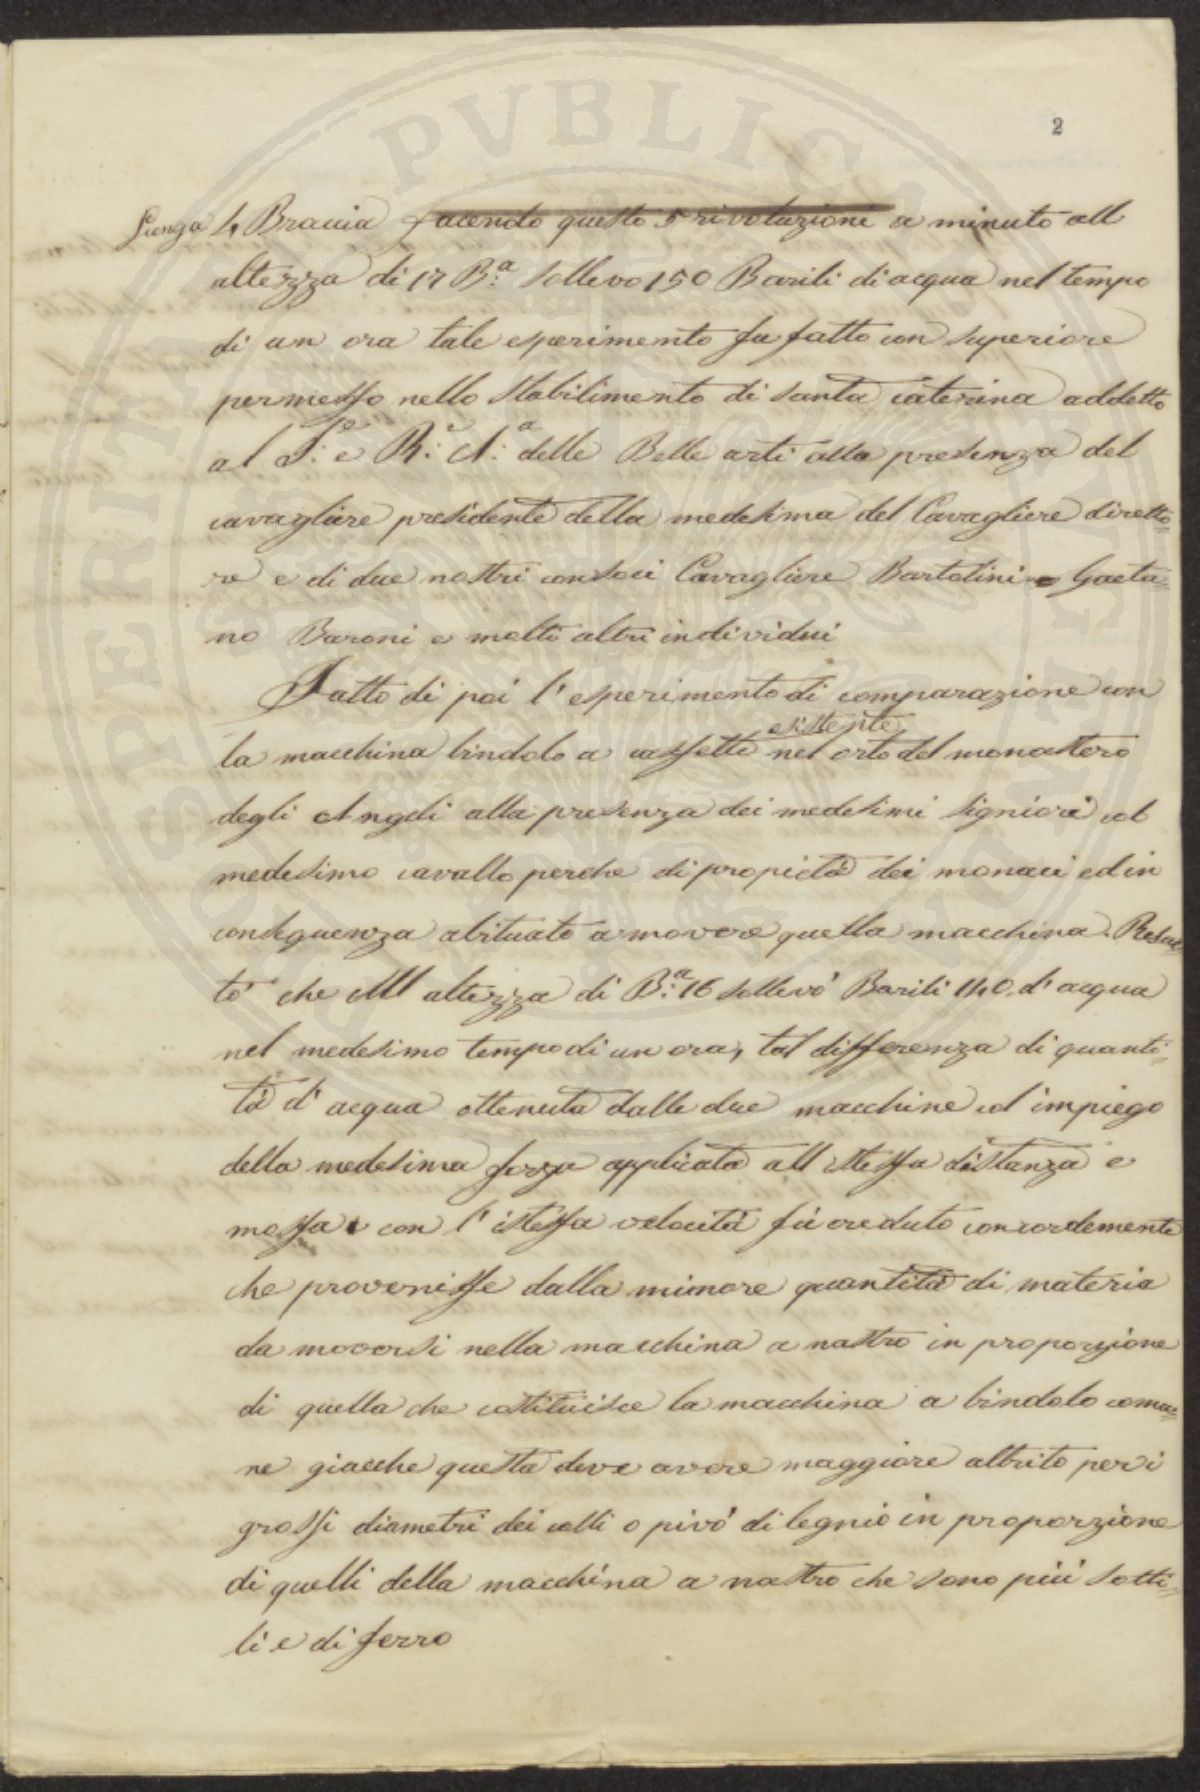 2
Lienza 4 Braccia facendo questo 5 rivoluzioni a minuto all
altezza di 17 B.a sollevo 150 Barili di acqua nel tempo
di un ora tale esperimento fu fatto con superiore
permesso nello Stabilimento di Santa Caterina addetto
al I: e R: A: delle Belle arti alla presenza del
cavagliere presidente della medesima del Cavagliere diretto=
re e di due nostri consoci Cavagliere Bartolini e Gaeta=
no Baroni e molti altri individui
Fatto di poi l'esperimento di comparazione con
esistente
la macchina bindolo a cassette nel orto del monastero
degli Angeli alla presenza dei medesimi signiori col
medesimo cavallo perche di propietà dei monaci ed in
conseguenza abituato a movere quella macchina. Resul=
tò che all altezza di B.a 16 sollevò Barili 140 d'acqua
nel medesimo tempo di un ora, tal differenza di quanti=
tà d'acqua ottenuta dalle due macchine col impiego
della medesima forza applicata all stessa distanza e
mossa con l'istessa velocità fù creduto concordemente
che provenisse dalla minore quantità di materia
da moversi nella macchina a nastro in proporzione
di quella che costituisce la macchina a bindolo comu=
ne giacche questa deve avere maggiore attrito per i
grossi diametri dei colli o pivò di legnio in proporzione
di quelli della macchina a nastro che sono più sotti=
li e di ferro
PVBLICAE
PROSPERITATIS